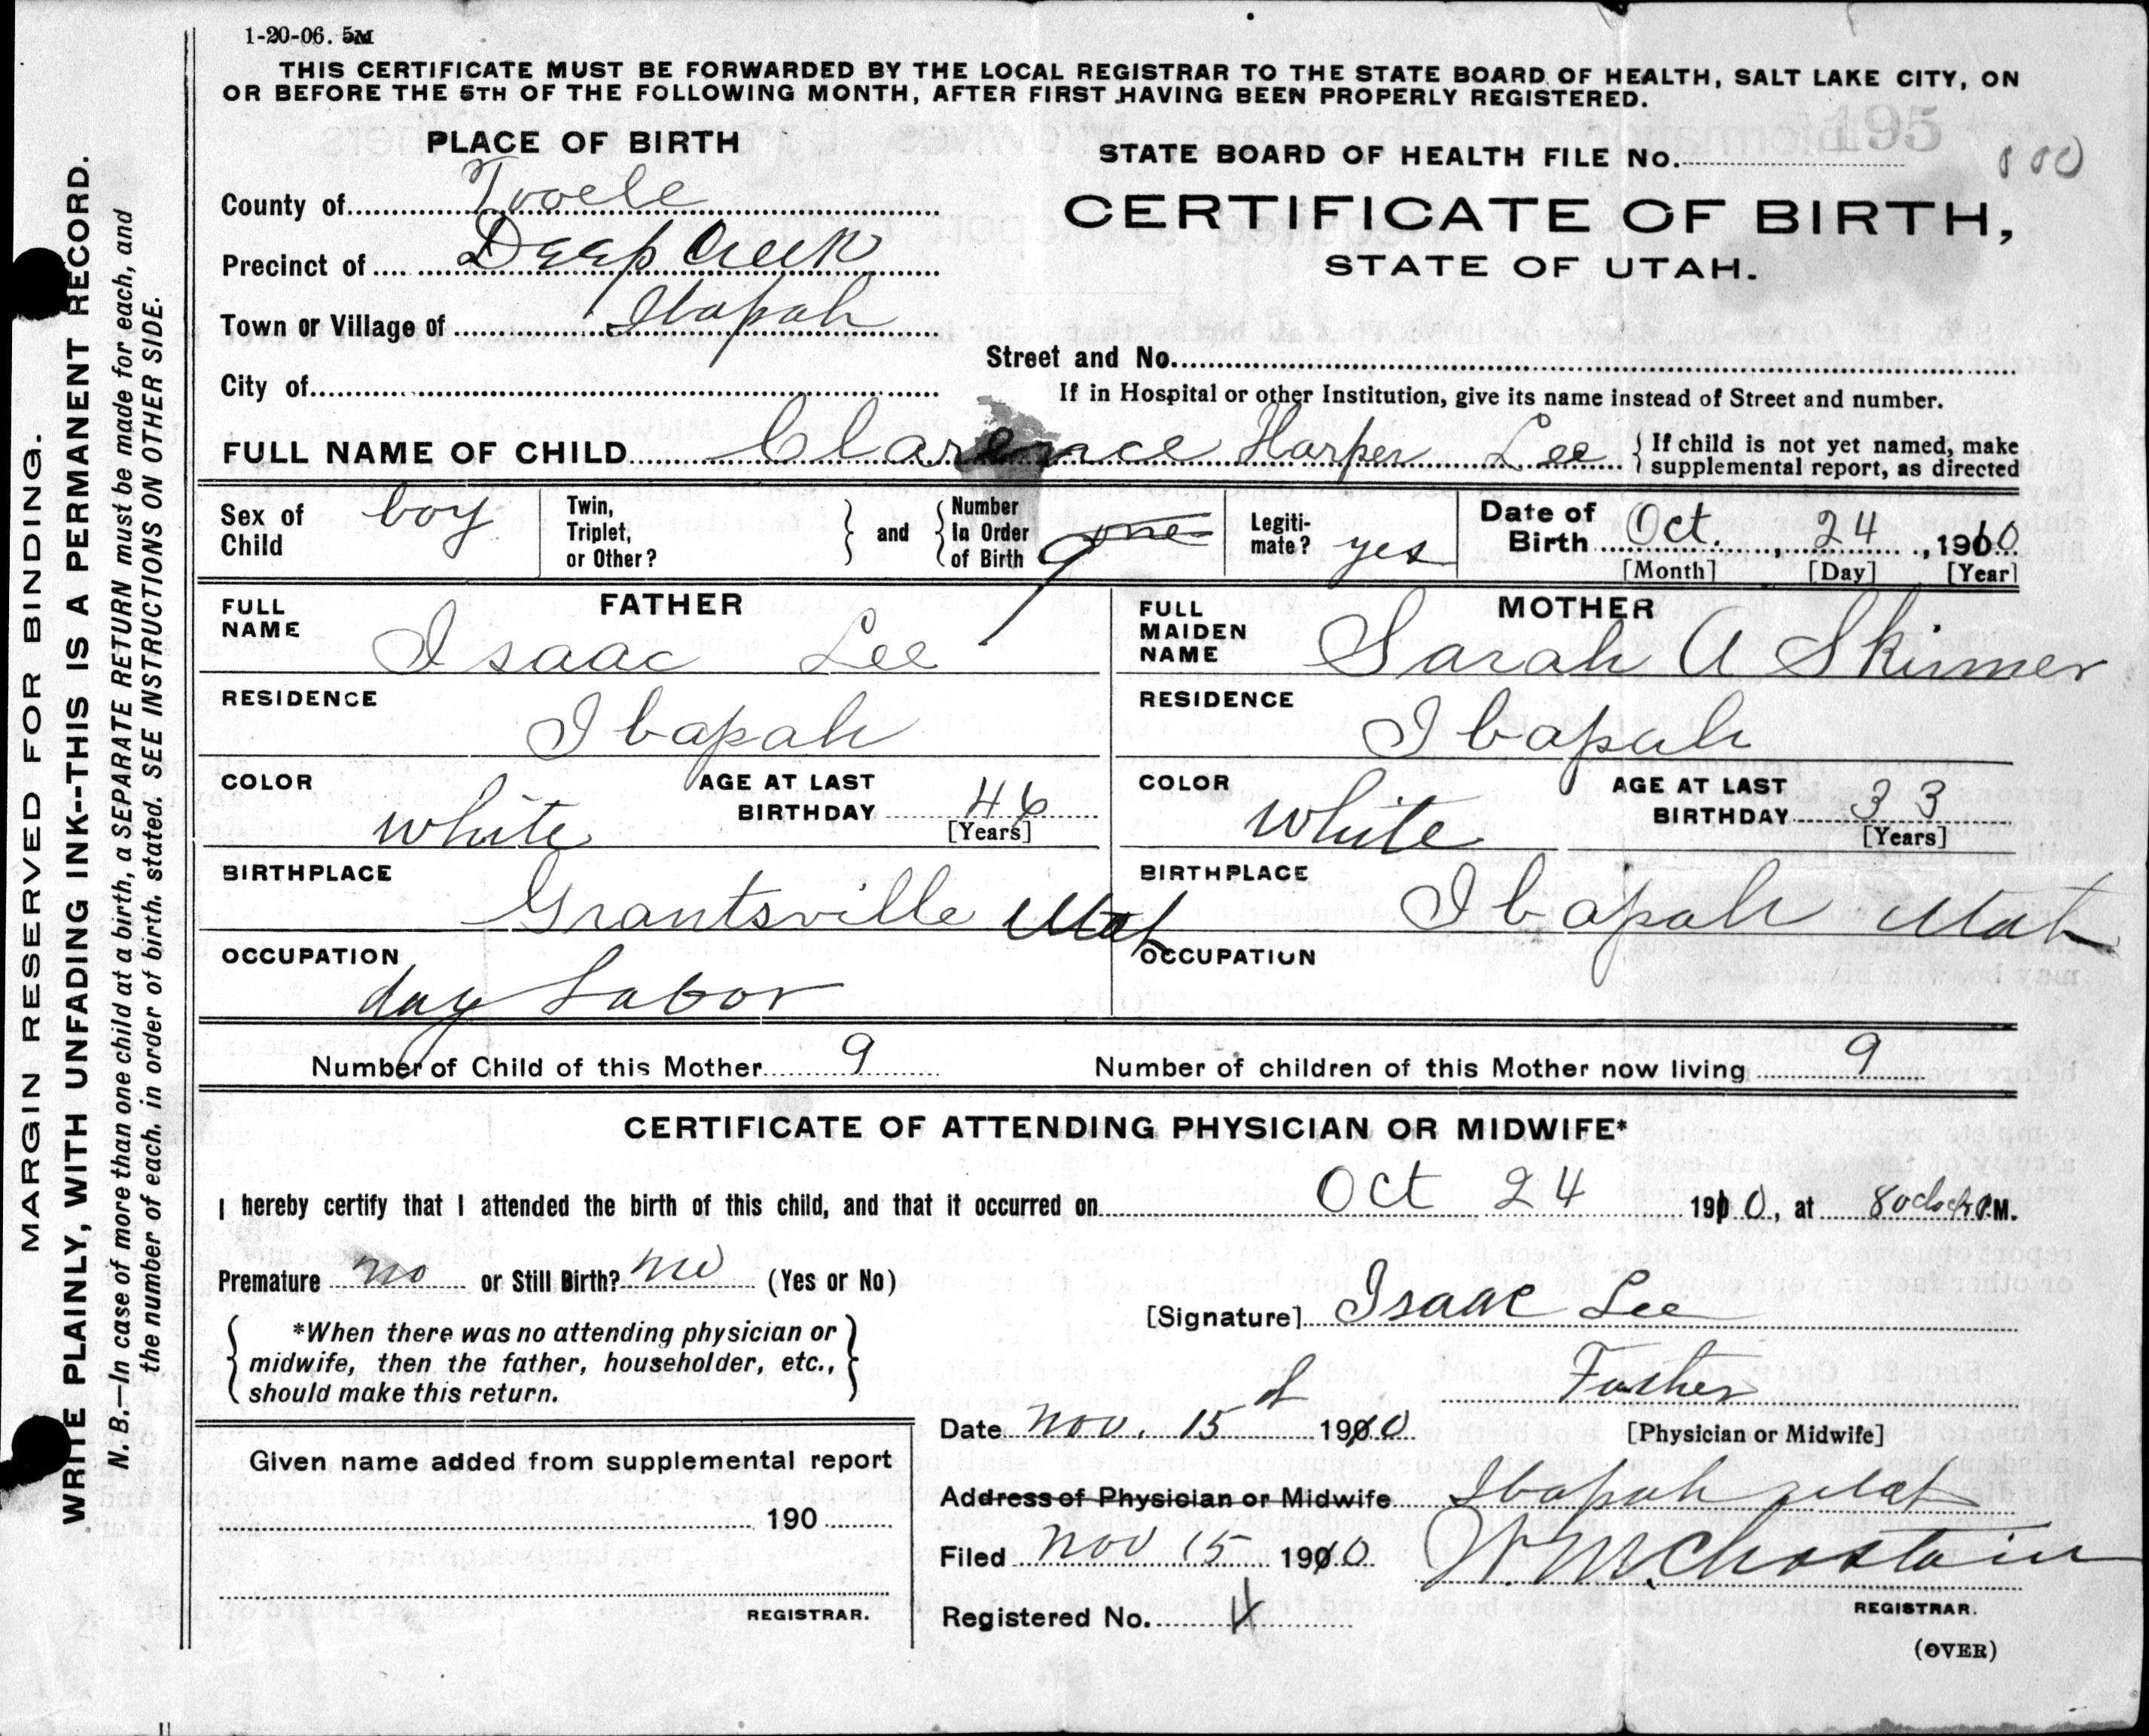 1-20-06. 5M
THIS CERTIFICATE MUST BE FORWARDED BY THE LOCAL REGISTRAR TO THE STATE BOARD OF HEALTH, SALT LAKE CITY, ON
OR BEFORE THE 5TH OF THE FOLLOWING MONTH, AFTER FIRST HAVING BEEN PROPERLY REGISTERED.
MARGIN RESERVED FOR BINDING.
WRITE PLAINLY, WITH UNFADING INK--THIS IS A PERMANENT RECORD.
N. B.—In case of more than one child at a birth, a SEPARATE RETURN must be made for each, and
the number of each, in order of birth, stated. SEE INSTRUCTIONS ON OTHER SIDE.
PLACE OF BIRTH
County of Tooele
Precinct of Deep Creek
Town or Village of Ibapah
City of
STATE BOARD OF HEALTH FILE No. 195
CERTIFICATE OF BIRTH,
STATE OF UTAH.
Street and No.
If in Hospital or other Institution, give its name instead of Street and number.
FULL NAME OF CHILD Clarence Harper Lee { If child is not yet named, make
supplemental report, as directed
Sex of
Child boy
Twin,
Triplet,
or Other?
} and {
Number
In Order
of Birth one 9
Legiti-
mate? yes
Date of
Birth Oct. , 24 , 1910
[Month] [Day] [Year]
FATHER
FULL
NAME Isaac Lee
RESIDENCE
Ibapah
COLOR
white
AGE AT LAST
BIRTHDAY 46
[Years]
BIRTHPLACE
Grantsville Utah
OCCUPATION
day Labor
MOTHER
FULL
MAIDEN
NAME Sarah A Skinner
RESIDENCE
Ibapah
COLOR
white
AGE AT LAST
BIRTHDAY 33
[Years]
BIRTHPLACE
Ibapah Utah
OCCUPATION
Number of Child of this Mother 9 Number of children of this Mother now living 9
CERTIFICATE OF ATTENDING PHYSICIAN OR MIDWIFE*
I hereby certify that I attended the birth of this child, and that it occurred on Oct 24 1910, at 8 oclock P.M.
Premature no or Still Birth? no (Yes or No)
*When there was no attending physician or
midwife, then the father, householder, etc.,
should make this return.
[Signature] Isaac Lee
Father
[Physician or Midwife]
Date Nov. 15 1910
Address of Physician or Midwife Ibapah Utah
Filed Nov 15 1910 W. M. Chastain
REGISTRAR.
Registered No. 4
(OVER)
Given name added from supplemental report
190
REGISTRAR.